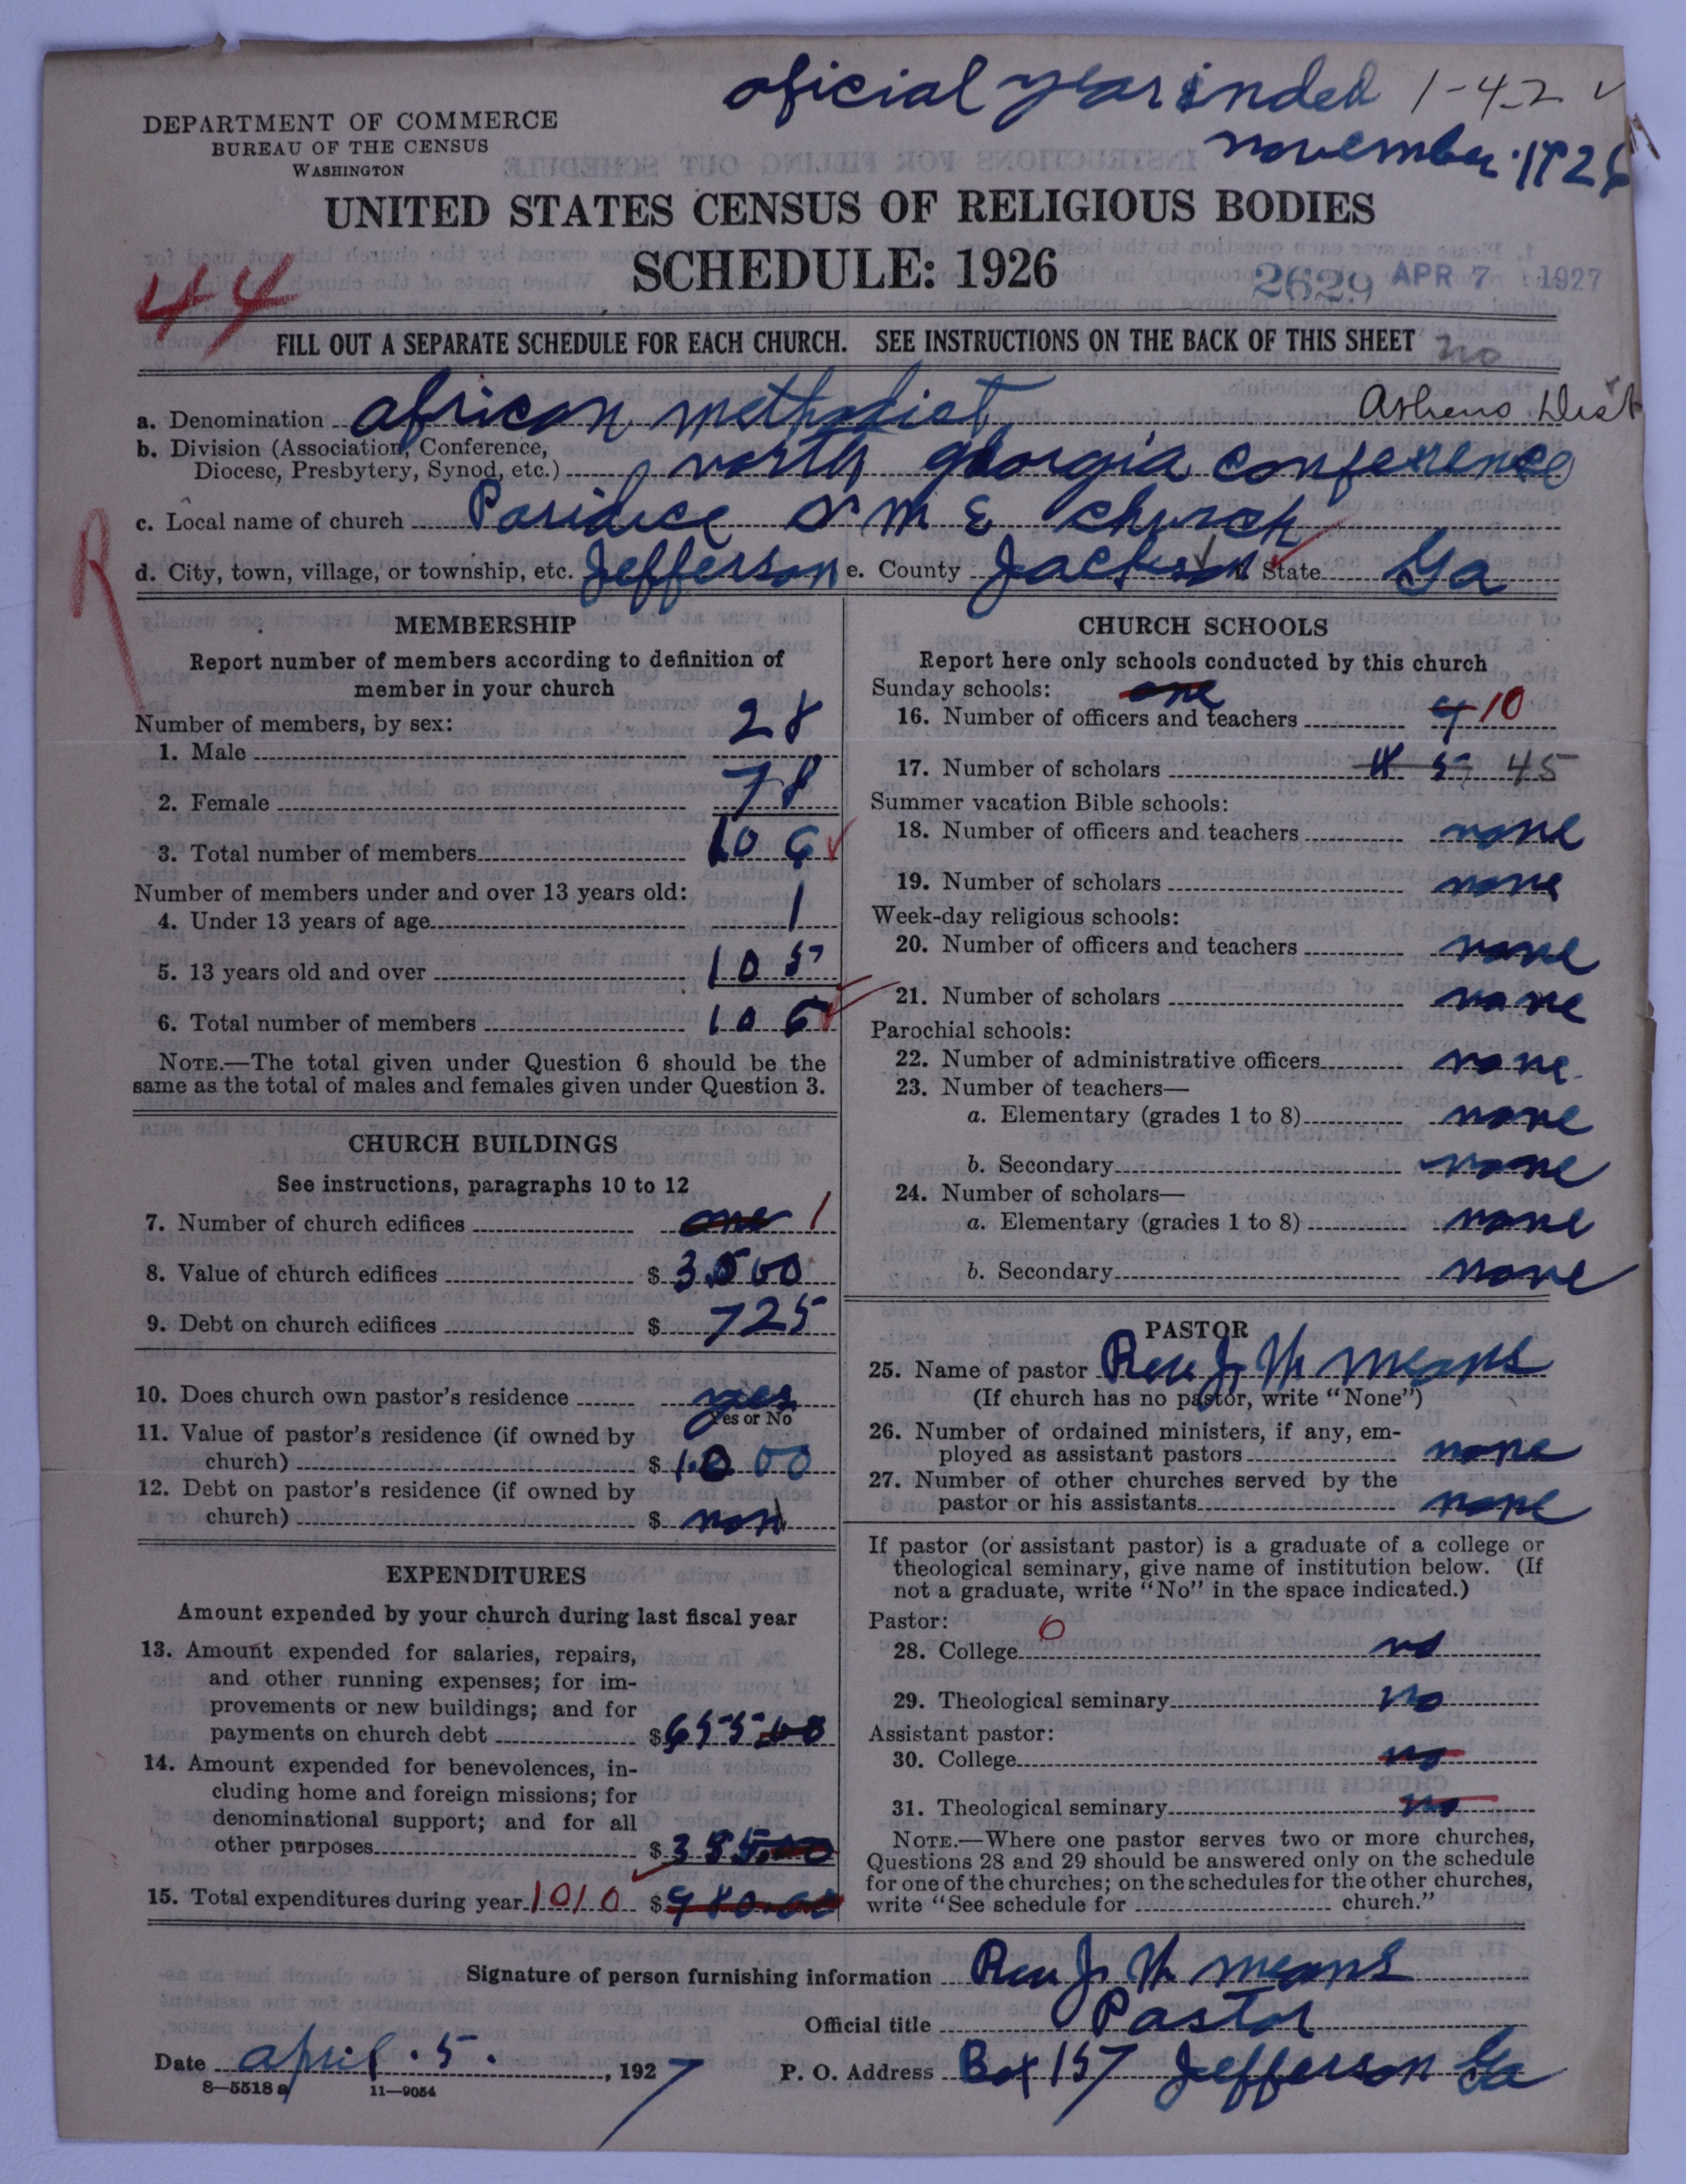 oficial year inded 1-4-2
november 1926
DEPARTMENT OF COMMERCE
BUREAU OF THE CENSUS
WASHINGTON
UNITED STATES CENSUS OF RELIGIOUS BODIES
SCHEDULE: 1926
44
2629 APR 7 1927
FILL OUT A SEPARATE SCHEDULE FOR EACH CHURCH. SEE INSTRUCTIONS ON THE BACK OF THIS SHEET no
a. Denomination african methodist Athens Dist
b. Division (Association, Conference,
Diocese, Presbytery, Synod, etc.) north georgia conference
c. Local name of church Paridice a M E church
R
d. City, town, village, or township, etc. Jefferson e. County Jackson State Ga
MEMBERSHIP
Report number of members according to definition of
member in your church
Number of members, by sex:
1. Male 28
2. Female 78
3. Total number of members 106
Number of members under and over 13 years old:
4. Under 13 years of age 1
5. 13 years old and over 105
6. Total number of members 106
NOTE.—The total given under Question 6 should be the
same as the total of males and females given under Question 3.
CHURCH BUILDINGS
See instructions, paragraphs 10 to 12
7. Number of church edifices one 1
8. Value of church edifices $ 3500
9. Debt on church edifices $ 725
10. Does church own pastor's residence yes
Yes or No
11. Value of pastor's residence (if owned by
church) $ 1000
12. Debt on pastor's residence (if owned by
church) $ non
EXPENDITURES
Amount expended by your church during last fiscal year
13. Amount expended for salaries, repairs,
and other running expenses; for im-
provements or new buildings; and for
payments on church debt $ 655.00
14. Amount expended for benevolences, in-
cluding home and foreign missions; for
denominational support; and for all
other purposes $ 355.00
15. Total expenditures during year 1010 $ 980.00
CHURCH SCHOOLS
Report here only schools conducted by this church
Sunday schools: one
16. Number of officers and teachers 9 10
17. Number of scholars 45
Summer vacation Bible schools:
18. Number of officers and teachers none
19. Number of scholars none
Week-day religious schools:
20. Number of officers and teachers none
21. Number of scholars none
Parochial schools:
22. Number of administrative officers none
23. Number of teachers—
a. Elementary (grades 1 to 8) none
b. Secondary none
24. Number of scholars—
a. Elementary (grades 1 to 8) none
b. Secondary none
PASTOR
25. Name of pastor Rev J. W means
(If church has no pastor, write "None")
26. Number of ordained ministers, if any, em-
ployed as assistant pastors none
27. Number of other churches served by the
pastor or his assistants none
If pastor (or assistant pastor) is a graduate of a college or
theological seminary, give name of institution below. (If
not a graduate, write "No" in the space indicated.)
Pastor: 0
28. College no
29. Theological seminary no
Assistant pastor:
30. College no
31. Theological seminary no
NOTE.—Where one pastor serves two or more churches,
Questions 28 and 29 should be answered only on the schedule
for one of the churches; on the schedules for the other churches,
write "See schedule for church."
Signature of person furnishing information Rev J. W means
Official title Pastor
Date april. 5. , 1927 P. O. Address Box 157 Jefferson Ga
8—5518 a 11—9054